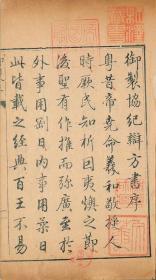 御製協紀辨方書序
粤昔帝堯命羲和敬授人
時厥民知析因夷燠之節
後聖有作推而彌廣至於
外事用剛日內事用柔日
此皆載之經典百王不易